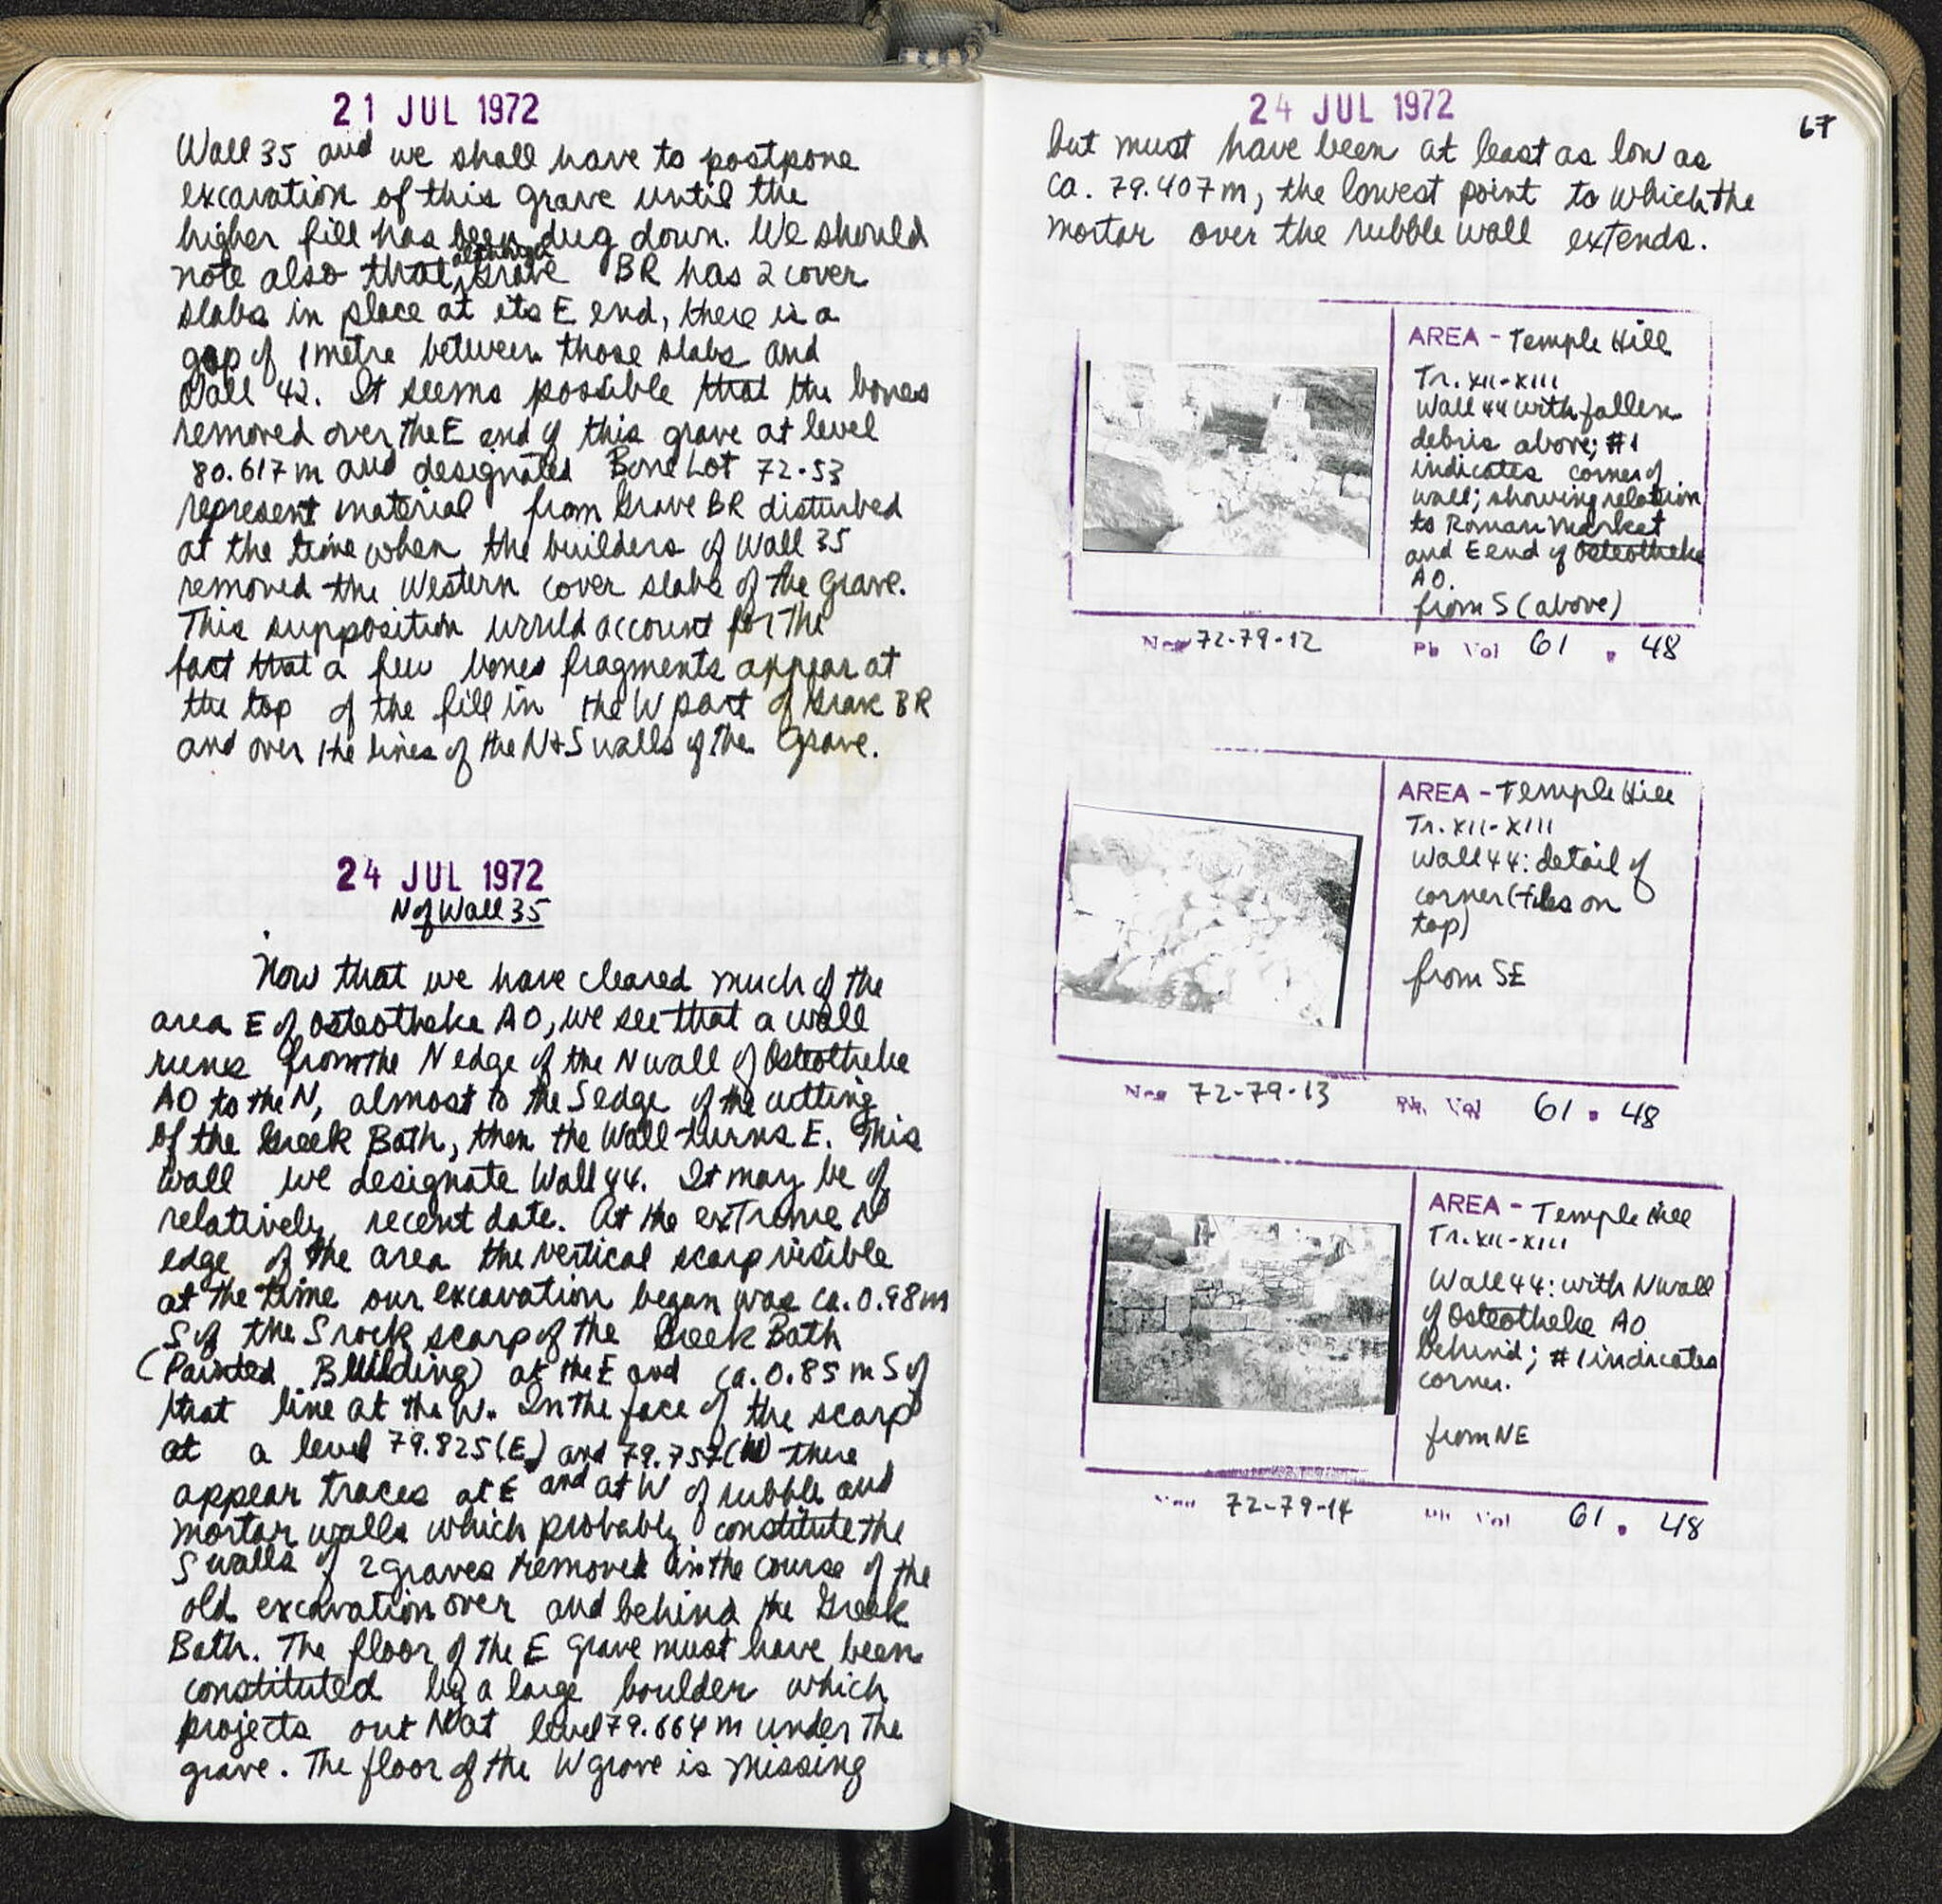 21 JUL 1972
Wall 35 and we shall have to postpone
excavation of this grave until the
higher fill has been dug down. We should
although
note also that, grave BR has 2 cover
slabs in place at its E end, there is a
gap of 1 metre between those slabs and
Wall 42. It seems possible that the bones
removed over the E end of this grave at level
80.617 m and designated Bone Lot 72-53
represent material from Grave BR disturbed
at the time when the builders of Wall 35
removed the Western cover slabs of the grave.
This supposition would account for the
fact that a few bones fragments appear at
the top of the fill in the W part of Grave BR
and over the lines of the N+S walls of the grave.
24 JUL 1972
N of Wall 35
Now that we have cleared much of the
area E of Osteotheke AO, we see that a wall
runs from the N edge of the N wall of Osteotheke
AO to the N, almost to the S edge of the cutting
of the Greek Bath, then the Wall turns E. This
wall we designate Wall 44. It may be of
relatively recent date. At the extreme N
edge of the area the vertical scarp visible
at the time our excavation began was ca. 0.98m
S of the S rock scarp of the Greek Bath
(Painted Building) at the E and ca. 0.85 m S of
that line at the W. In the face of the scarp
at a level 79.825(E) and 79.757(W) there
appear traces at E and at W of rubble and
mortar walls which probably constitute the
S walls of 2 graves removed in the course of the
old excavation over and behind the Greek
Bath. The floor of the E grave must have been
constituted by a large boulder which
projects out N at level 79.664 m under the
grave. The floor of the W grave is missing
24 JUL 1972
67
but must have been at least as low as
ca. 79.407 m, the lowest point to which the
mortar over the rubble wall extends.
AREA - Temple Hill
Tr. XII-XIII
Wall 44 with fallen
debris above; #1
indicates corner of
wall; showing relation
to Roman Market
and E end of Osteotheke
AO.
from S (above)
Neg 72-79-12 Ph Vol 61 . 48
AREA - Temple Hill
Tr. XII-XIII
Wall 44: detail of
corner (tiles on
top)
from SE
Neg 72-79-13 Ph. Vol 61 . 48
AREA - Temple Hill
Tr. XII-XIII
Wall 44: with N wall
of Osteotheke AO
behind; #1 indicates
corner.
from NE
72-79-14 Vol 61 . 48